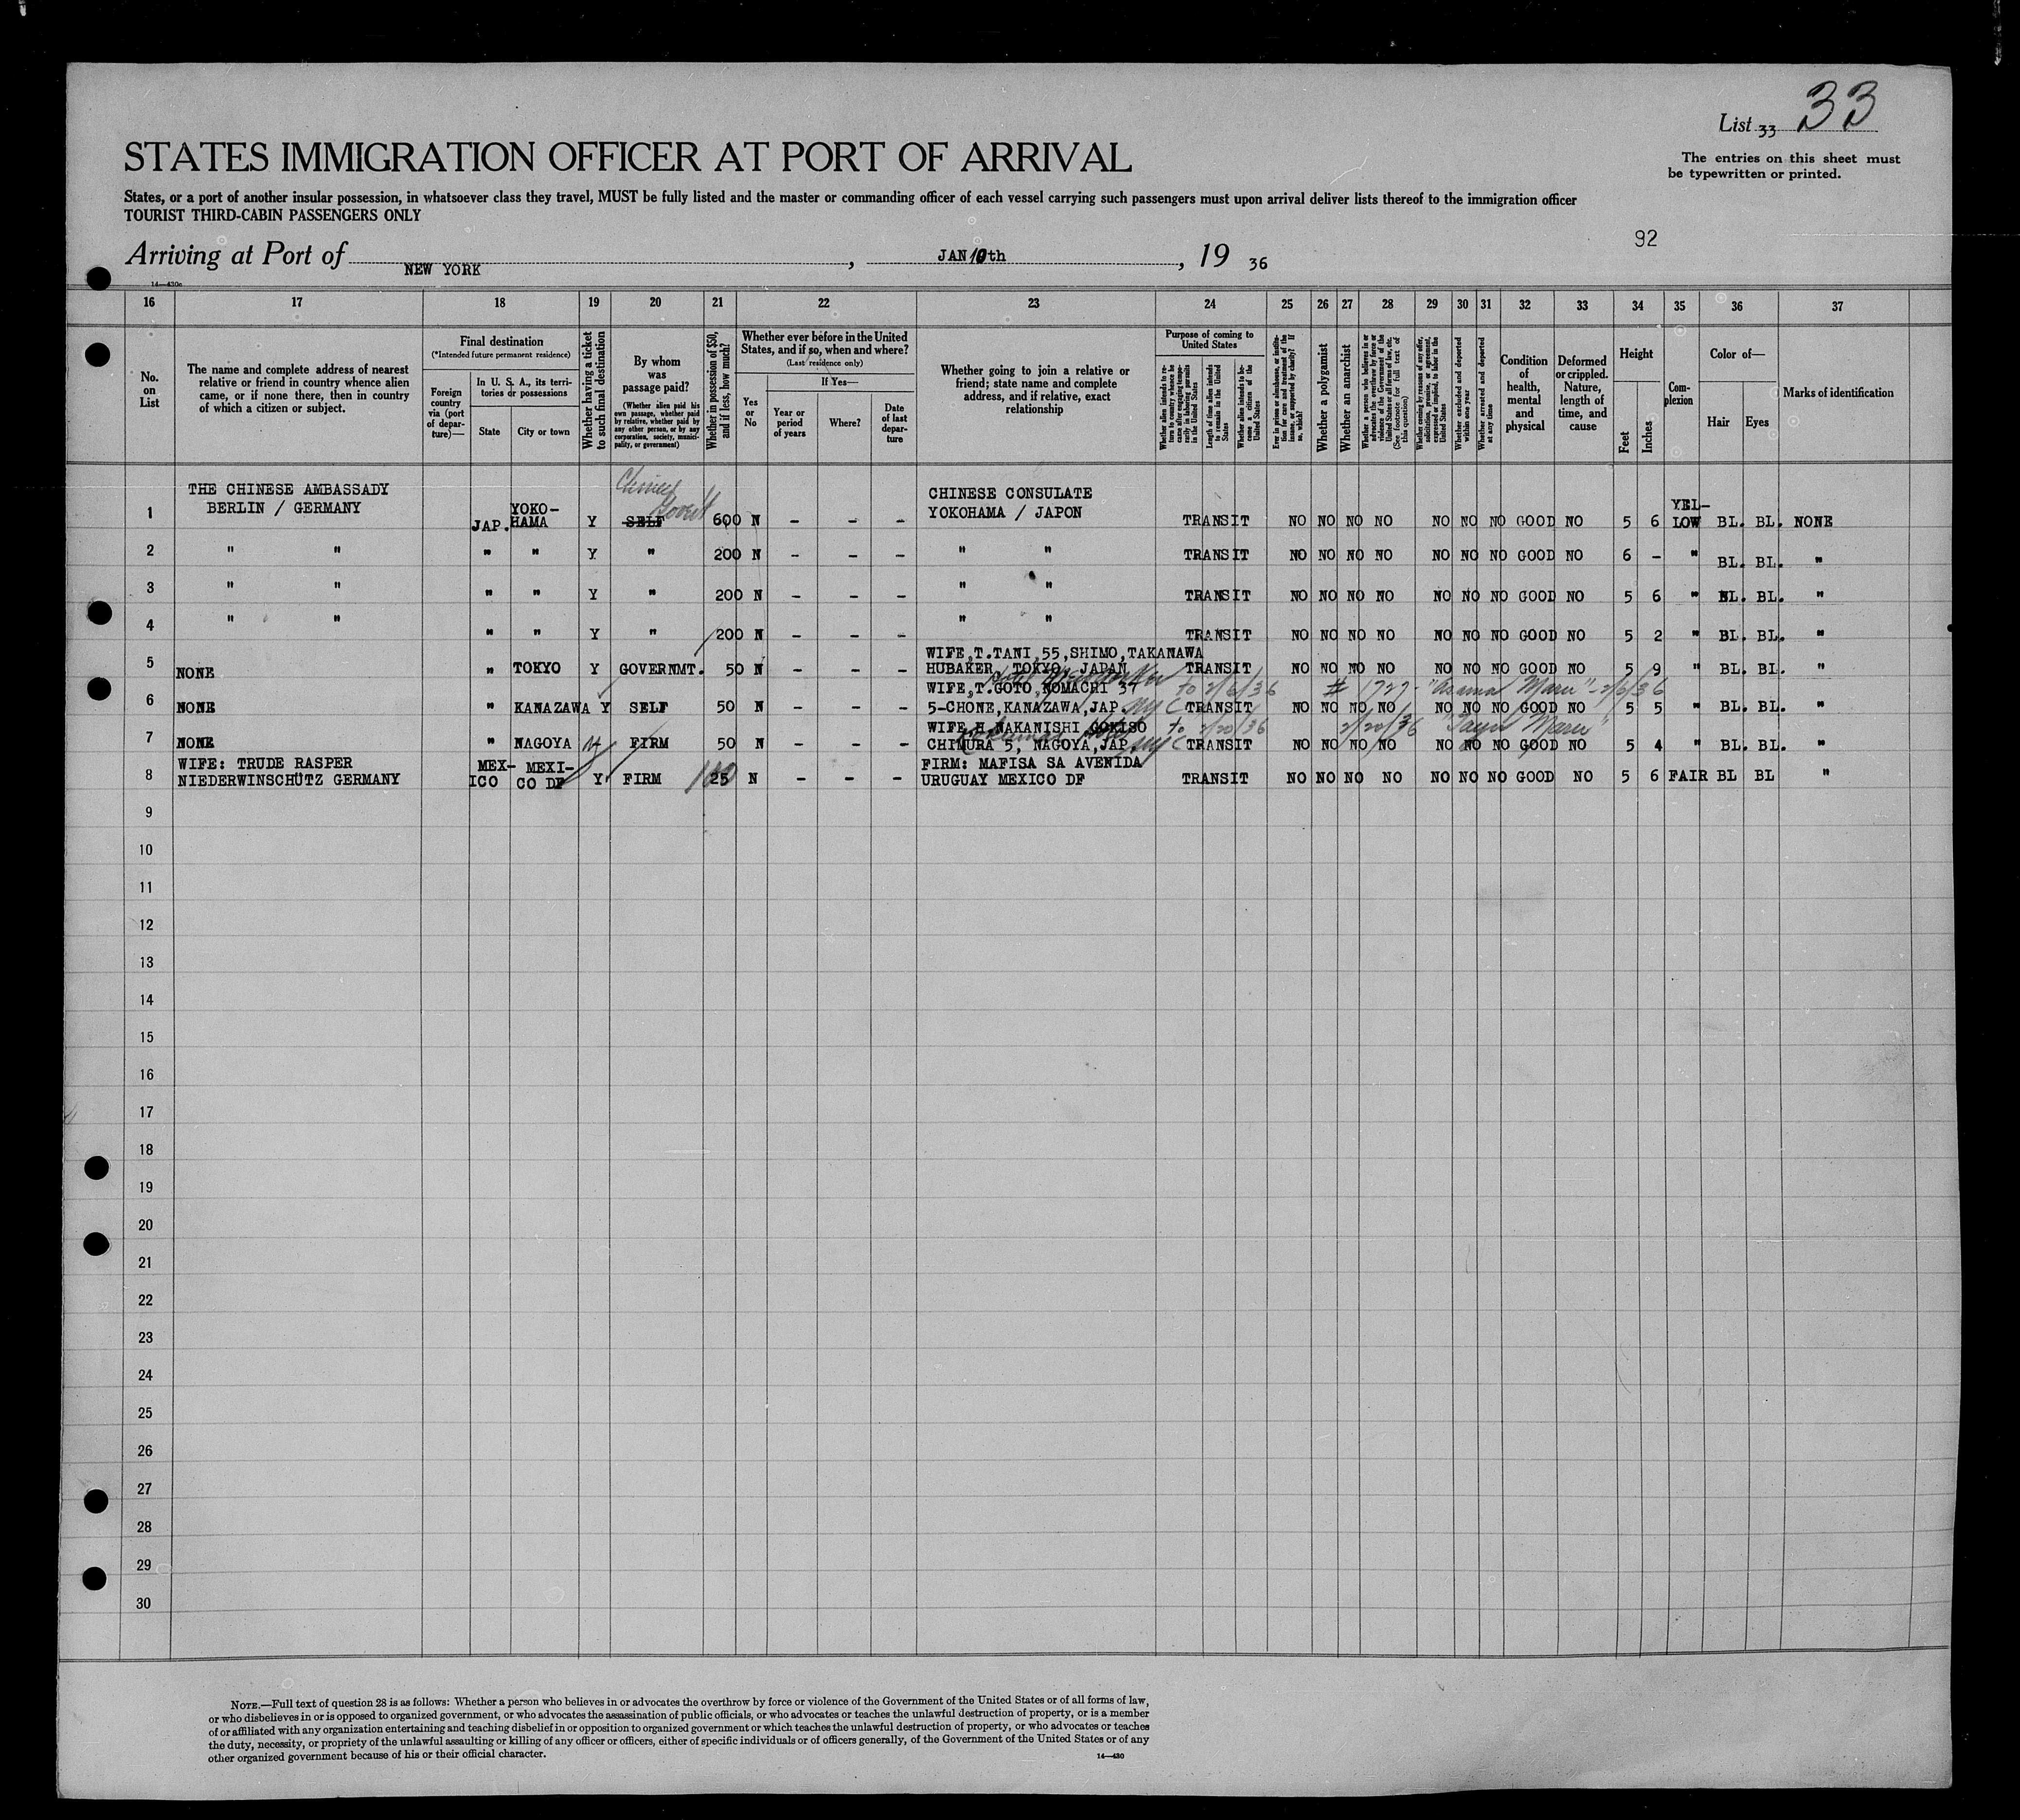 List 33 33
STATES IMMIGRATION OFFICER AT PORT OF ARRIVAL
The entries on this sheet must
be typewritten or printed.
States, or a port of another insular possession, in whatsoever class they travel, MUST be fully listed and the master or commanding officer of each vessel carrying such passengers must upon arrival deliver lists thereof to the immigration officer
TOURIST THIRD-CABIN PASSENGERS ONLY
92
Arriving at Port of NEW YORK, JAN 10th, 19 36
14—430c
16 17 18 19 20 21 22 23 24 25 26 27 28 29 30 31 32 33 34 35 36 37
No.
on
List
The name and complete address of nearest
relative or friend in country whence alien
came, or if none there, then in country
of which a citizen or subject.
Final destination
(*Intended future permanent residence)
Foreign
country
via (port
of depar-
ture)—
In U. S. A., its terri-
tories or possessions
State
City or town
Whether having a ticket
to such final destination
By whom
was
passage paid?
(Whether alien paid his
own passage, whether paid
by relative, whether paid by
any other person, or by any
corporation, society, munici-
pality, or government)
Whether in possession of $50,
and if less, how much?
Whether ever before in the United
States, and if so, when and where?
(Last residence only)
Yes
or
No
If Yes—
Year or
period
of years
Where?
Date
of last
depar-
ture
Whether going to join a relative or
friend; state name and complete
address, and if relative, exact
relationship
Purpose of coming to
United States
Whether alien intends to re-
turn to country whence he
came after engaging tempo-
rarily in laboring pursuits
in the United States
Length of time alien intends
to remain in the United
States
Whether alien intends to be-
come a citizen of the
United States
Ever in prison or almshouse, or institu-
tion for care and treatment of the
insane, or supported by charity? If
so, which?
Whether a polygamist
Whether an anarchist
Whether a person who believes in or
advocates the overthrow by force or
violence of the Government of the
United States or all forms of law, etc.
(See footnote for full text of
this question)
Whether coming by reasons of any offer,
solicitation, promise, or agreement,
expressed or implied, to labor in the
United States
Whether excluded and deported
within one year
Whether arrested and deported
at any time
Condition
of
health,
mental
and
physical
Deformed
or crippled.
Nature,
length of
time, and
cause
Height
Feet
Inches
Com-
plexion
Color of—
Hair
Eyes
Marks of identification
THE CHINESE AMBASSADY Chinese CHINESE CONSULATE
1 BERLIN / GERMANY JAP. YOKO-HAMA Y SELF Govmt 600 N - - - YOKOHAMA / JAPON TRANSIT NO NO NO NO NO NO NO GOOD NO 5 6 YEL-LOW BL. BL. NONE
2 " " " " Y " 200 N - - - " " TRANSIT NO NO NO NO NO NO NO GOOD NO 6 - " BL. BL. "
3 " " " " Y " 200 N - - - " " TRANSIT NO NO NO NO NO NO NO GOOD NO 5 6 " BL. BL. "
4 " " " " Y " 200 N - - - " " TRANSIT NO NO NO NO NO NO NO GOOD NO 5 2 " BL. BL. "
WIFE,T.TANI,55,SHIMO,TAKANAWA
5 NONE " TOKYO Y GOVERNMT. 50 N - - - HUBAKER, TOKYO, JAPAN TRANSIT NO NO NO NO NO NO NO GOOD NO 5 9 " BL. BL. "
WIFE,T.GOTO,NOMACHI 37 to 2/6/36 # 1727- "Asama Maru" - 2/6/36
6 NONE " KANAZAWA Y SELF 50 N - - - 5-CHONE,KANAZAWA,JAP. NYC TRANSIT NO NO NO NO NO NO NO GOOD NO 5 5 " BL. BL. "
WIFE,H.NAKANISHI GOKISO to 2/20/36 2/20/36 "Taiyo Maru"
7 NONE " NAGOYA FIRM 50 N - - - CHIMURA 5, NAGOYA,JAP NYC TRANSIT NO NO NO NO NO NO NO GOOD NO 5 4 " BL. BL. "
WIFE: TRUDE RASPER MEX- MEXI- FIRM: MAFISA SA AVENIDA
8 NIEDERWINSCHÜTZ GERMANY ICO CO DF Y FIRM 100 25 N - - - URUGUAY MEXICO DF TRANSIT NO NO NO NO NO NO NO GOOD NO 5 6 FAIR BL BL "
9
10
11
12
13
14
15
16
17
18
19
20
21
22
23
24
25
26
27
28
29
30
NOTE.—Full text of question 28 is as follows: Whether a person who believes in or advocates the overthrow by force or violence of the Government of the United States or of all forms of law,
or who disbelieves in or is opposed to organized government, or who advocates the assassination of public officials, or who advocates or teaches the unlawful destruction of property, or is a member
of or affiliated with any organization entertaining and teaching disbelief in or opposition to organized government or which teaches the unlawful destruction of property, or who advocates or teaches
the duty, necessity, or propriety of the unlawful assaulting or killing of any officer or officers, either of specific individuals or of officers generally, of the Government of the United States or of any
other organized government because of his or their official character.
14—430